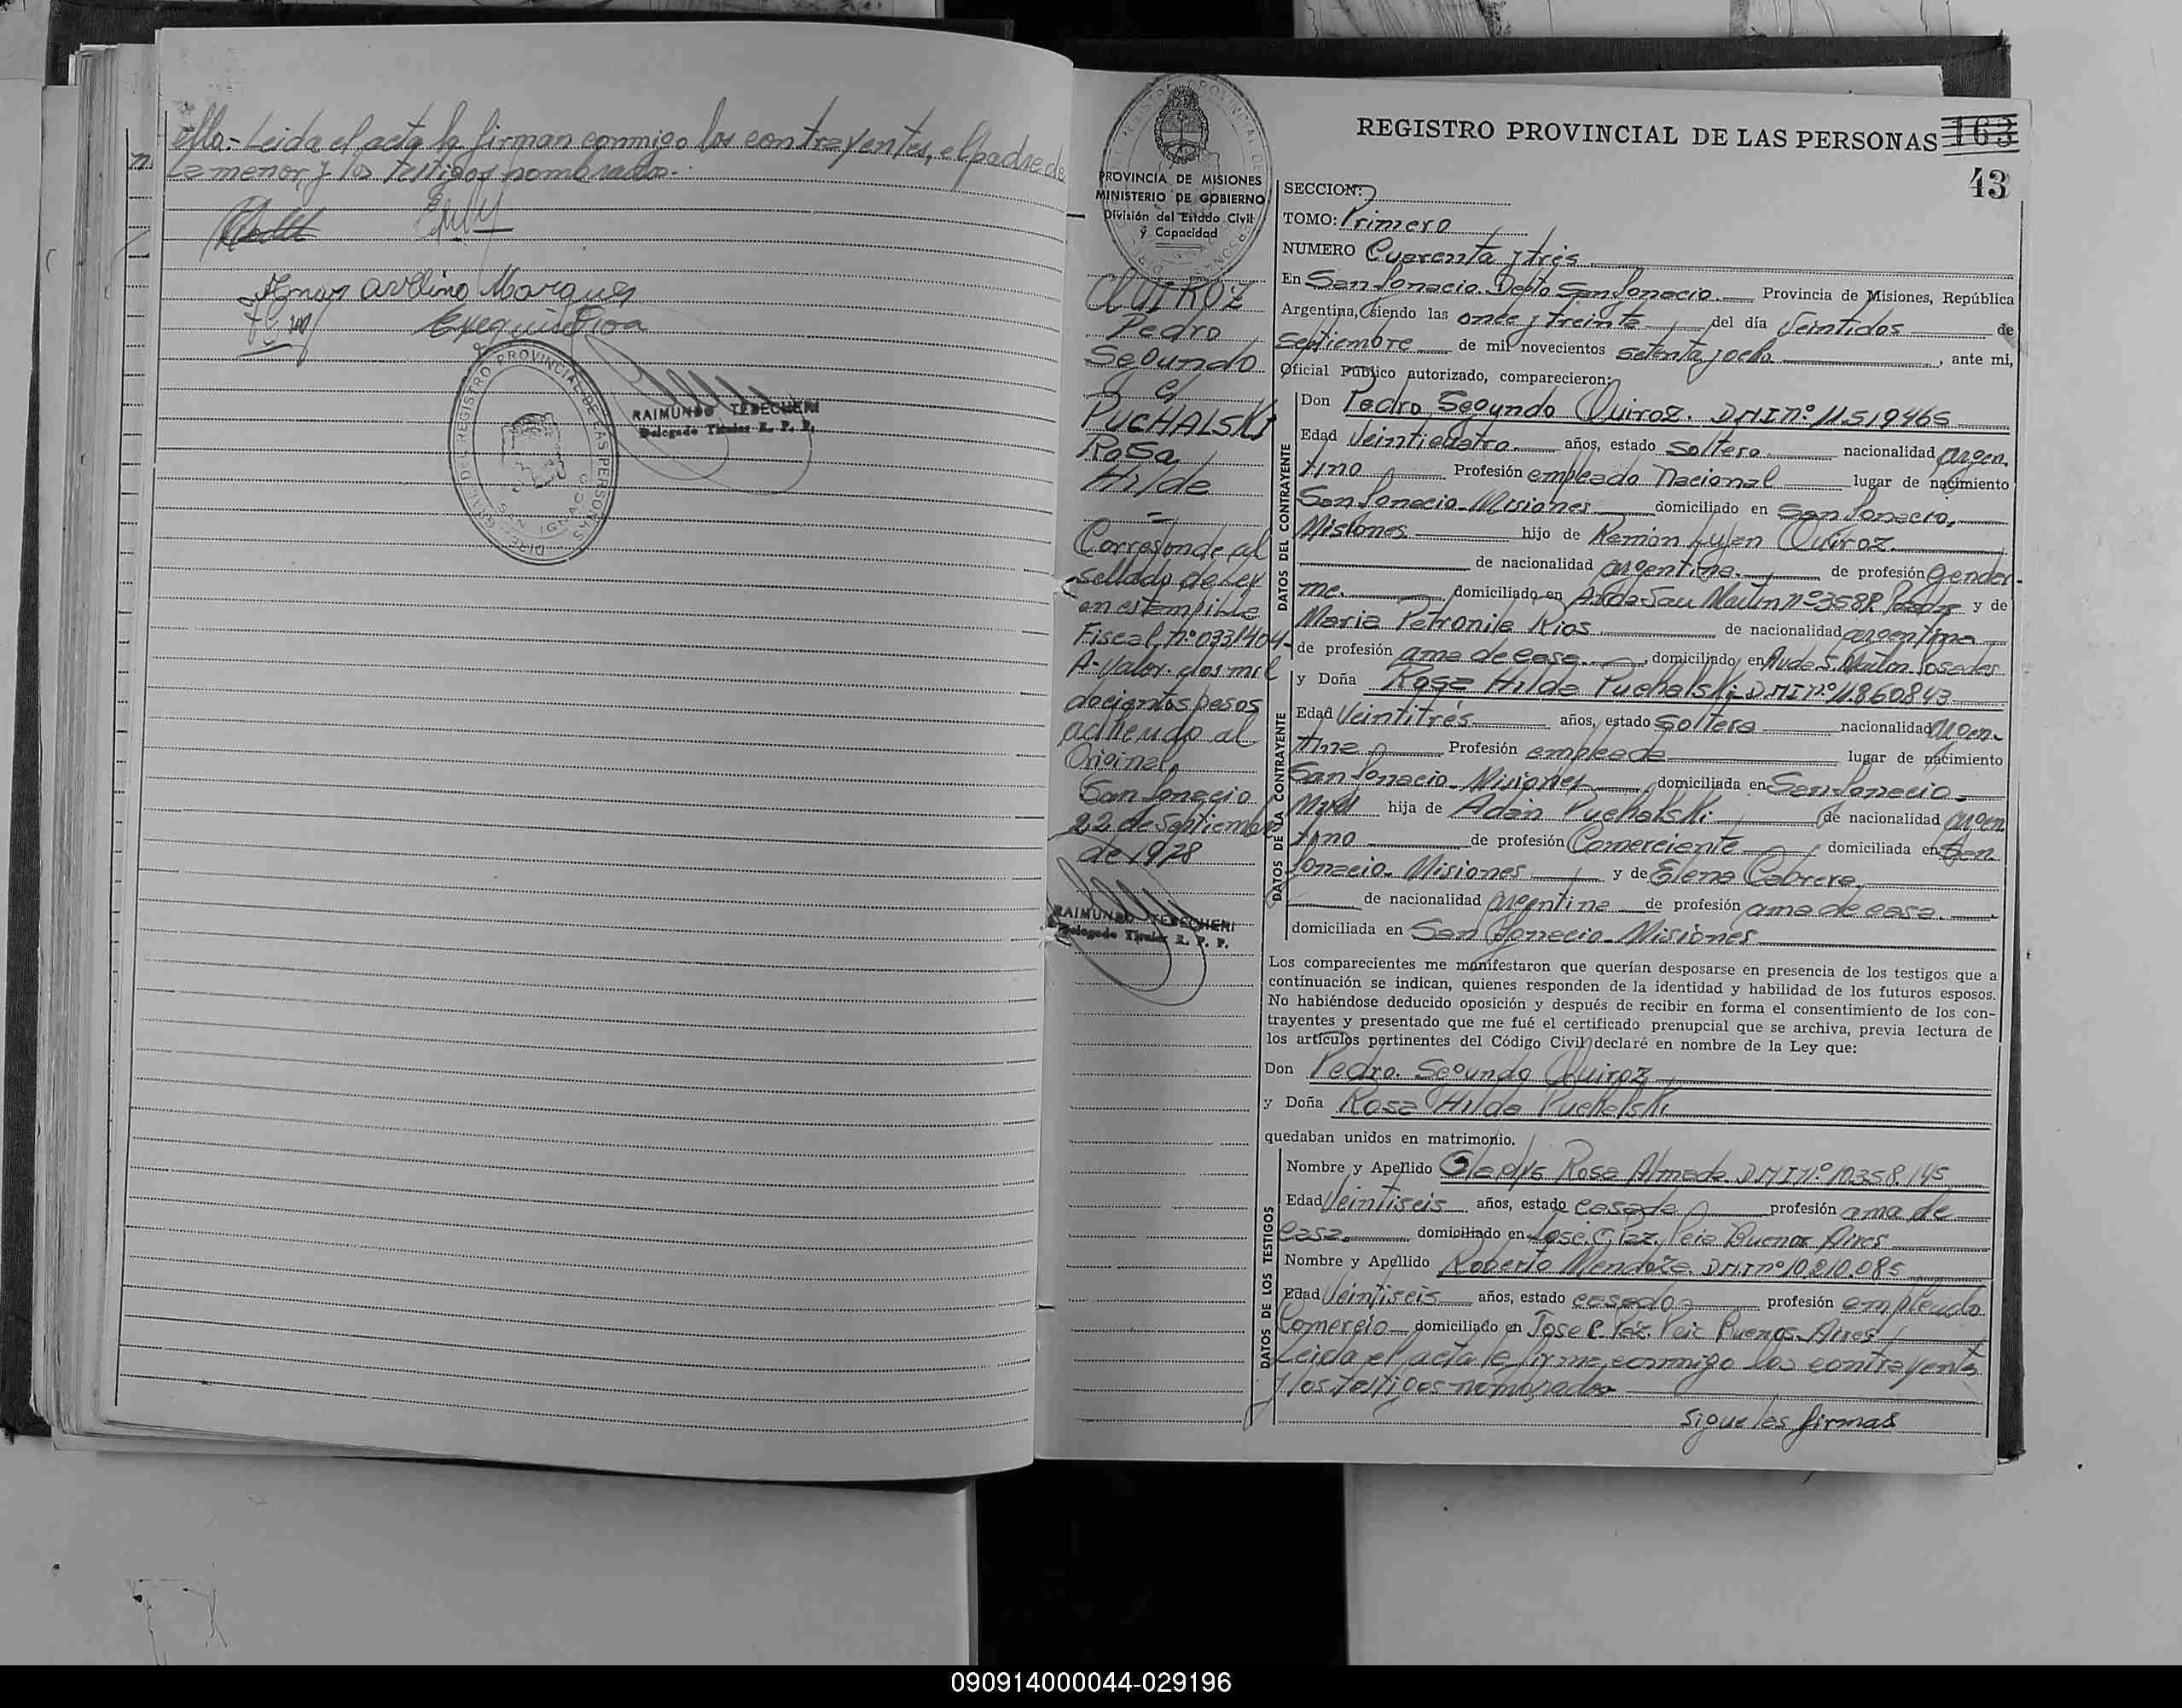 ella.- Leida el acta la firman conmigo los contrayentes, el padre de
la menor, y los testigos nombrados.-
Avelino Marques
RAIMUNDO TEBECHERI
Delegado Titular R. P. P.
DIRE. GRAL. DEL REGISTRO PROVINCIAL DE LAS PERSONAS
SAN IGNACIO
REGISTRO PROVINCIAL DE LAS PERSONAS 163
43
PROVINCIA DE MISIONES
MINISTERIO DE GOBIERNO
División del Estado Civil
y Capacidad
QUIROZ
Pedro
Segundo
el
PUCHALSKI
Rosa
Hilda
=
Corresponde al
sellado de Ley
en estampilla
Fiscal, nº 0331404-
A- Valor. dos mil
docientos pesos
adherido al
Original,
San Ignacio
22 de Septiembre
de 1978
RAIMUNDO TEBECHERI
Delegado Titular R. P. P.
SECCION:
TOMO: Primero
NUMERO Cuarenta y tres
En San Ignacio. Depto San Ignacio. Provincia de Misiones, República
Argentina, siendo las once y treinta del día Veintidos de
Septiembre de mil novecientos setenta y ocho, ante mi,
Oficial Público autorizado, comparecieron:
DATOS DEL CONTRAYENTE
Don Pedro Segundo Quiroz. DMI nº 11.519465
Edad Veinticuatro años, estado soltero nacionalidad argen.
tino Profesión empleado Nacional lugar de nacimiento
San Ignacio-Misiones domiciliado en San Ignacio.
Misiones. hijo de Ramon Lujan Quiroz.
de nacionalidad argentina. de profesión Gendar-
me. domiciliado en Avda San Martin nº 3588 y de
Maria Petronila Rios de nacionalidad argentina
de profesión ama de casa, domiciliado en Avda S. Martin Posadas
DATOS DE LA CONTRAYENTE
y Doña Rosa Hilda Puchalski- DMI nº 11.860843
Edad Veintitrés años, estado soltera nacionalidad argen-
tina Profesión empleada lugar de nacimiento
San Ignacio-Misiones, domiciliada en San Ignacio-
hija de Adán Puchalski de nacionalidad argen
tino de profesión Comerciante, domiciliada en San
Ignacio- Misiones y de Elena Cabrera,
de nacionalidad argentina de profesión ama de casa.
domiciliada en San Ignacio-Misiones
Los comparecientes me manifestaron que querían desposarse en presencia de los testigos que a
continuación se indican, quienes responden de la identidad y habilidad de los futuros esposos.
No habiéndose deducido oposición y después de recibir en forma el consentimiento de los con-
trayentes y presentado que me fué el certificado prenupcial que se archiva, previa lectura de
los artículos pertinentes del Código Civil declaré en nombre de la Ley que:
Don Pedro. Segundo Quiroz
y Doña Rosa Hilda Puchalski
quedaban unidos en matrimonio.
DATOS DE LOS TESTIGOS
Nombre y Apellido Gladys Rosa Almada. DMI nº 10.358.145
Edad Veintiseis años, estado casada profesión ama de
casa. domiciliado en José. C. Paz. Pcia Buenos Aires
Nombre y Apellido Roberto Mendoza. DMI nº 10.210.085
Edad Veintiseis años, estado casado profesión empleado
Comercio domiciliado en Jose C. Paz. Pcia Buenos-Aires
Leida el acta la firma, conmigo los contrayentes
y los testigos nombrados
Sigue las firmas
090914000044-029196